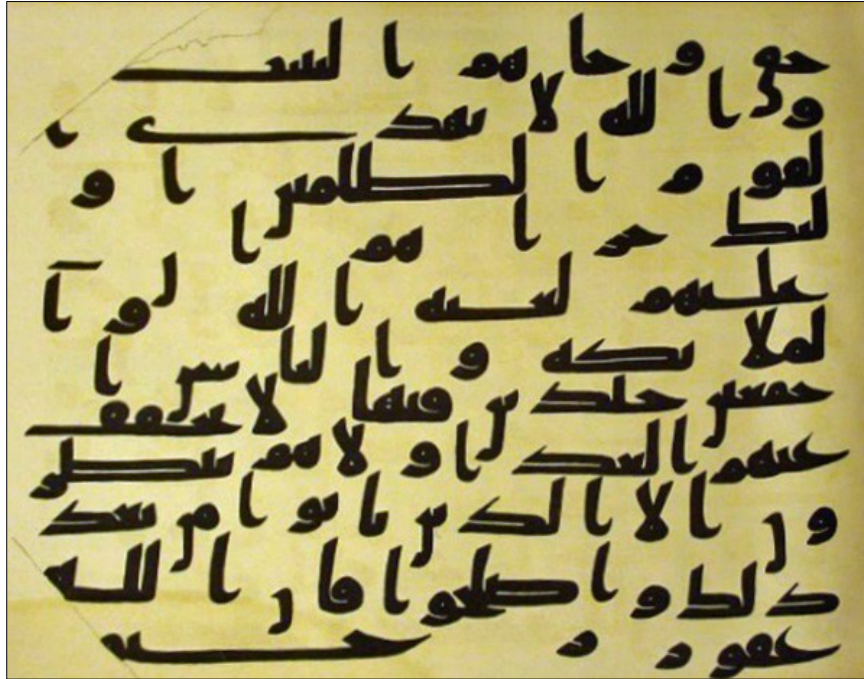 حق وجاهم البينت
والله لا يهدي ا
لقوم الظلمين او
لئك جزاهم ان
عليهم لعنه الله وا
لملئكه والناس ا
جمعين خلدين فيها لا يخفف
عنهم العذاب ولا هم ينظر
ون الا الذين تابوا من بعد
ذلك واصلحوا فان الله
غفور رحيم